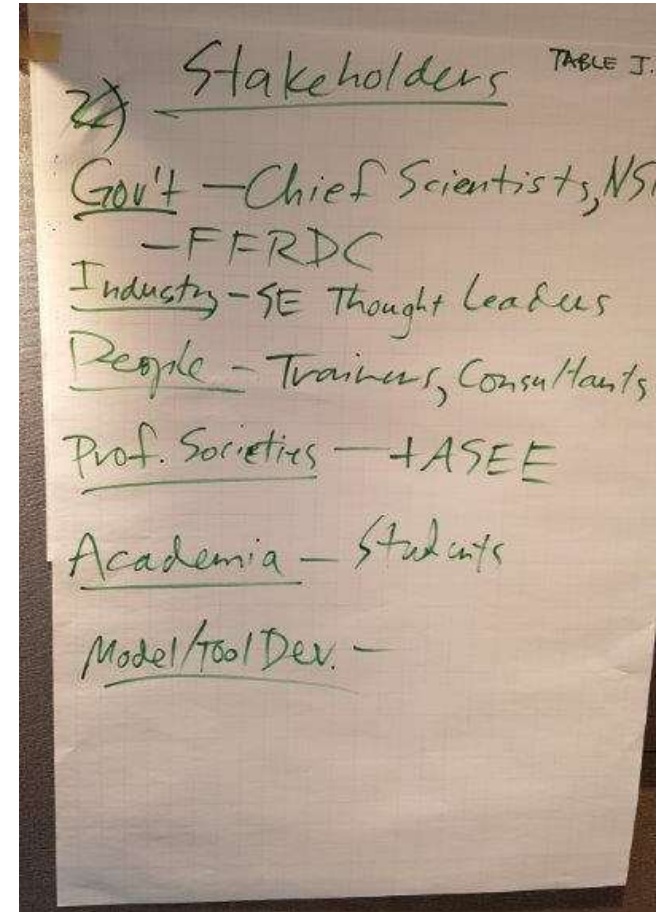 2) Stakeholders TABLE J.
Gov't - Chief Scientists,
- FFRDC
Industry - SE Thought Leaders
People - Trainers, Consultants
Prof. Societies - + ASEE
Academia - Students
Model/Tool Dev. -